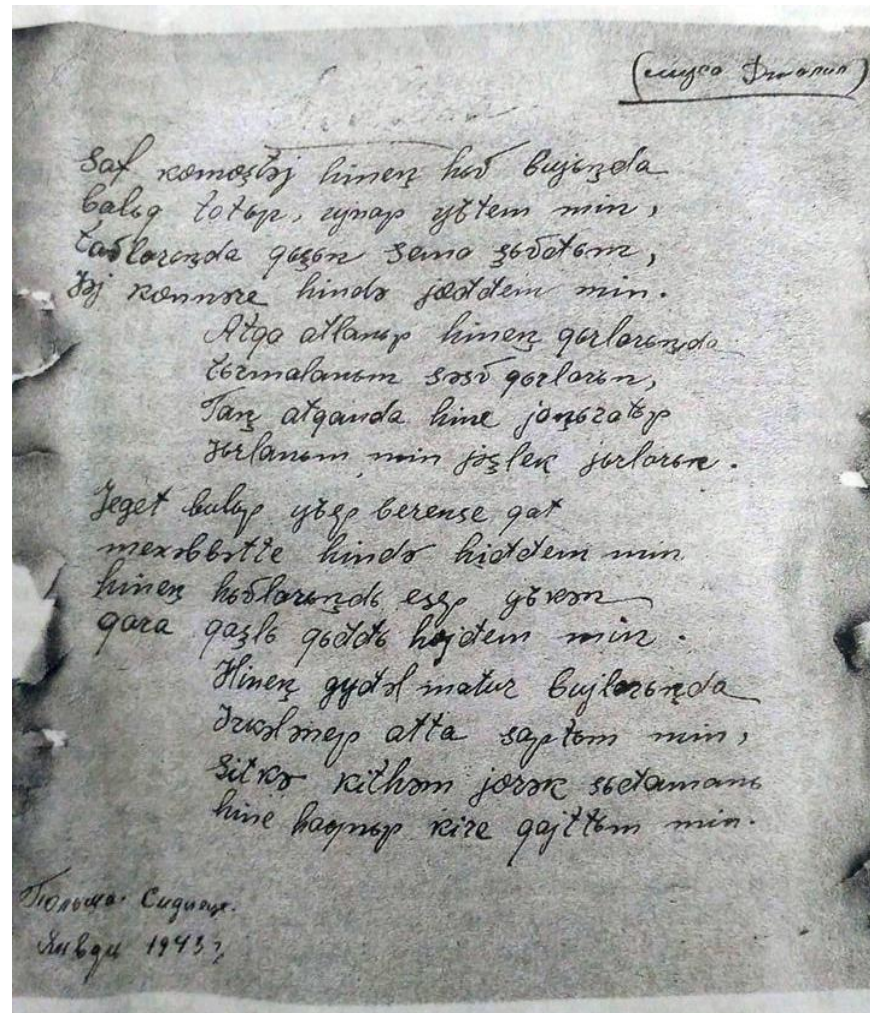 (Муса Джалил)
Saf kɵmɵştəj hineꞑ hьv bujьꞑda
balьq totьp, ujnap yѣtem min,
tavlarьꞑda qьşьn sana şьvđьm,
Jəj kɵnnəre hində jɵđđem min.
Atqa atlanьp hineꞑ qьrlarьꞑda
tьrmalanьm səsv qьrlarьn,
Taꞑ atqanda hine jaꞑьratьp
Jьrlanьm min jəşlek jьrlarьn.
Jeget bulьp yѣep berense qat
mexəbbətte hində hiđđem min
hineꞑ hьvlarьꞑdь esep yѣkən
qara qaşlь qьđđь hɵjđem min.
Hineꞑ gyđəl matur bujlarьꞑda
Irkələnep atta saptьm min,
Sitkə kithəm jɵrək sьđamanь
hine haqnьp kire qajttьm min.
Польша. Сидлец.
Январь 1943 г.